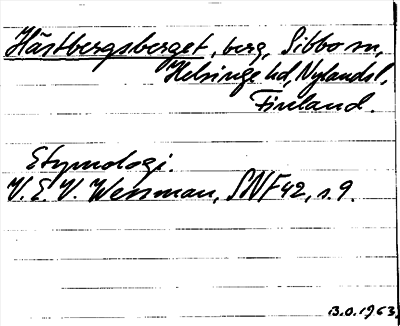 Hästbergsberget, berg, Sibbo sn,
Helsinge hd, Nylands l,
Finland.
Etymologi.
V. E. V. Wessman, SNF 42, s. 9.
B.O. 1963